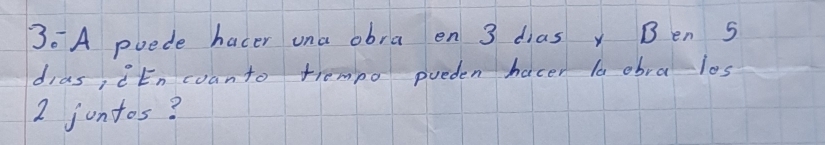 3.- A puede hacer una obra en 3 dias y B en 5
dias, ¿En cuanto tiempo pueden hacer la obra los
2 juntos?